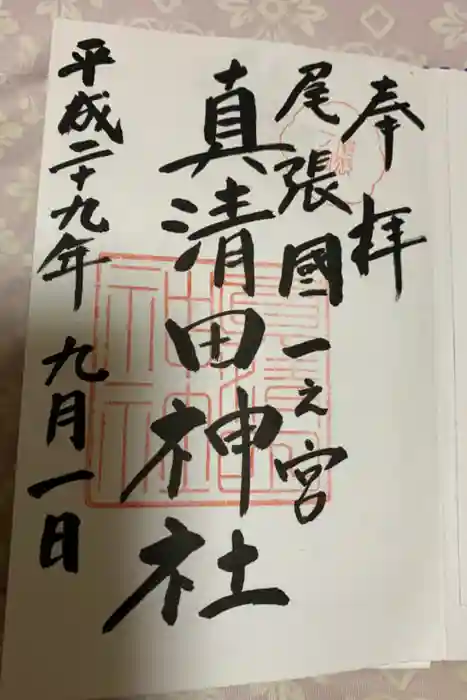 奉拝
尾張國一之宮
真清田神社
平成二十九年 九月一日